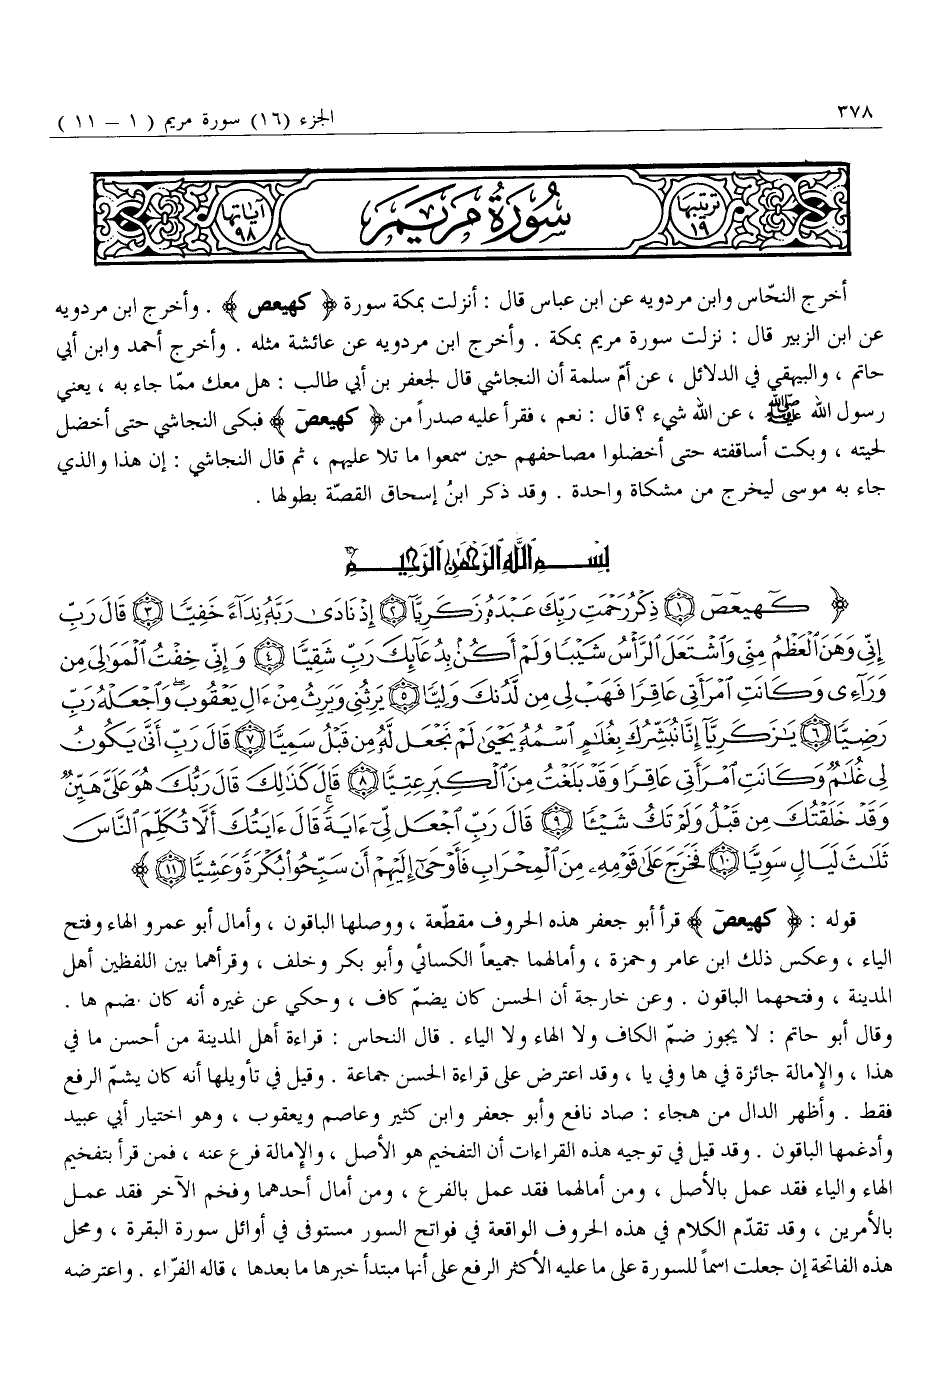 ٣٧٨
الجزء (١٦) سورة مريم ( ١ – ١١ )
ترتيبها ١٩
سورة مريم
آياتها ٩٨
أخرج النحّاس وابن مردويه عن ابن عباس قال : أنزلت بمكة سورة ﴿ كهيعص ﴾ . وأخرج ابن مردويه
عن ابن الزبير قال : نزلت سورة مريم بمكة . وأخرج ابن مردويه عن عائشة مثله . وأخرج أحمد وابن أبي
حاتم ، والبيهقي في الدلائل ، عن أمّ سلمة أن النجاشي قال لجعفر بن أبي طالب : هل معك ممّا جاء به ، يعني
رسول الله ﷺ ، عن الله شيء ؟ قال : نعم ، فقرأ عليه صدراً من ﴿ كهيعصۤ ﴾ فبكى النجاشي حتى أخضل
لحيته ، وبكت أساقفته حتى أخضلوا مصاحفهم حين سمعوا ما تلا عليهم ، ثم قال النجاشي : إن هذا والذي
جاء به موسى ليخرج من مشكاة واحدة . وقد ذكر ابنُ إسحاق القصّة بطولها .
بِسْمِ ٱللَّهِ ٱلرَّحْمَٰنِ ٱلرَّحِيمِ
﴿ كٓهيعٓصٓ ﴿١﴾ ذِكْرُ رَحْمَتِ رَبِّكَ عَبْدَهُۥ زَكَرِيَّآ ﴿٢﴾ إِذْ نَادَىٰ رَبَّهُۥ نِدَآءً خَفِيًّا ﴿٣﴾ قَالَ رَبِّ
إِنِّى وَهَنَ ٱلْعَظْمُ مِنِّى وَٱشْتَعَلَ ٱلرَّأْسُ شَيْبًا وَلَمْ أَكُنۢ بِدُعَآئِكَ رَبِّ شَقِيًّا ﴿٤﴾ وَإِنِّى خِفْتُ ٱلْمَوَٰلِىَ مِن
وَرَآءِى وَكَانَتِ ٱمْرَأَتِى عَاقِرًا فَهَبْ لِى مِن لَّدُنكَ وَلِيًّا ﴿٥﴾ يَرِثُنِى وَيَرِثُ مِنْ ءَالِ يَعْقُوبَ ۖ وَٱجْعَلْهُ رَبِّ
رَضِيًّا ﴿٦﴾ يَٰزَكَرِيَّآ إِنَّا نُبَشِّرُكَ بِغُلَٰمٍ ٱسْمُهُۥ يَحْيَىٰ لَمْ نَجْعَل لَّهُۥ مِن قَبْلُ سَمِيًّا ﴿٧﴾ قَالَ رَبِّ أَنَّىٰ يَكُونُ
لِى غُلَٰمٌ وَكَانَتِ ٱمْرَأَتِى عَاقِرًا وَقَدْ بَلَغْتُ مِنَ ٱلْكِبَرِ عِتِيًّا ﴿٨﴾ قَالَ كَذَٰلِكَ قَالَ رَبُّكَ هُوَ عَلَىَّ هَيِّنٌ
وَقَدْ خَلَقْتُكَ مِن قَبْلُ وَلَمْ تَكُ شَيْـًٔا ﴿٩﴾ قَالَ رَبِّ ٱجْعَل لِّىٓ ءَايَةً ۚ قَالَ ءَايَتُكَ أَلَّا تُكَلِّمَ ٱلنَّاسَ
ثَلَٰثَ لَيَالٍ سَوِيًّا ﴿١٠﴾ فَخَرَجَ عَلَىٰ قَوْمِهِۦ مِنَ ٱلْمِحْرَابِ فَأَوْحَىٰٓ إِلَيْهِمْ أَن سَبِّحُوا۟ بُكْرَةً وَعَشِيًّا ﴿١١﴾ ﴾
قوله : ﴿ كهيعصۤ ﴾ قرأ أبو جعفر هذه الحروف مقطّعة ، ووصلها الباقون ، وأمال أبو عمرو الهاء وفتح
الياء ، وعكس ذلك ابن عامر وحمزة ، وأمالهما جميعاً الكسائي وأبو بكر وخلف ، وقرأهما بين اللفظين أهل
المدينة ، وفتحهما الباقون . وعن خارجة أن الحسن كان يضمّ كاف ، وحكي عن غيره أنه كان يضم ها .
وقال أبو حاتم : لا يجوز ضمّ الكاف ولا الهاء ولا الياء . قال النحاس : قراءة أهل المدينة من أحسن ما في
هذا ، والإمالة جائزة في ها وفي يا ، وقد اعترض على قراءة الحسن جماعة . وقيل في تأويلها أنه كان يشمّ الرفع
فقط . وأظهر الدال من هجاء : صاد نافع وأبو جعفر وابن كثير وعاصم ويعقوب ، وهو اختيار أبي عبيد
وأدغمها الباقون . وقد قيل في توجيه هذه القراءات أن التفخيم هو الأصل ، والإمالة فرع عنه ، فمن قرأ بتفخيم
الهاء والياء فقد عمل بالأصل ، ومن أمالهما فقد عمل بالفرع ، ومن أمال أحدهما وفخم الآخر فقد عمل
بالأمرين ، وقد تقدّم الكلام في هذه الحروف الواقعة في فواتح السور مستوفى في أوائل سورة البقرة ، ومحل
هذه الفاتحة إن جعلت اسماً للسورة على ما عليه الأكثر الرفع على أنها مبتدأ خبرها ما بعدها ، قاله الفرّاء . واعترضه